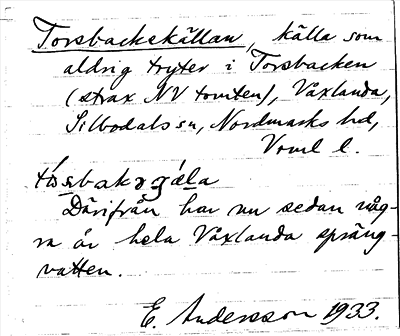 Torsbackekällan, källa som
aldrig tryter i Torsbacken
(strax NV tomten), Växlanda,
Silbodals sn, Nordmarks hd,
Verml l.
Därifrån har nu sedan någ-
ra år hela Växlanda spräng-
vatten.
E. Andersson 1933.